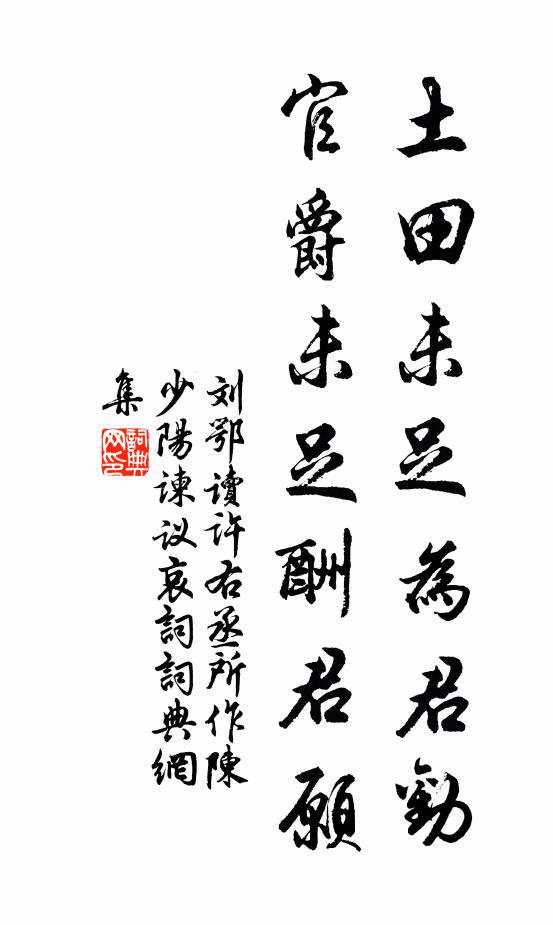 土田未足為君勸
官爵未足酬君願
刘鄂讀許右丞所作陳
少陽諫议哀詞詞典網
集
詞典网